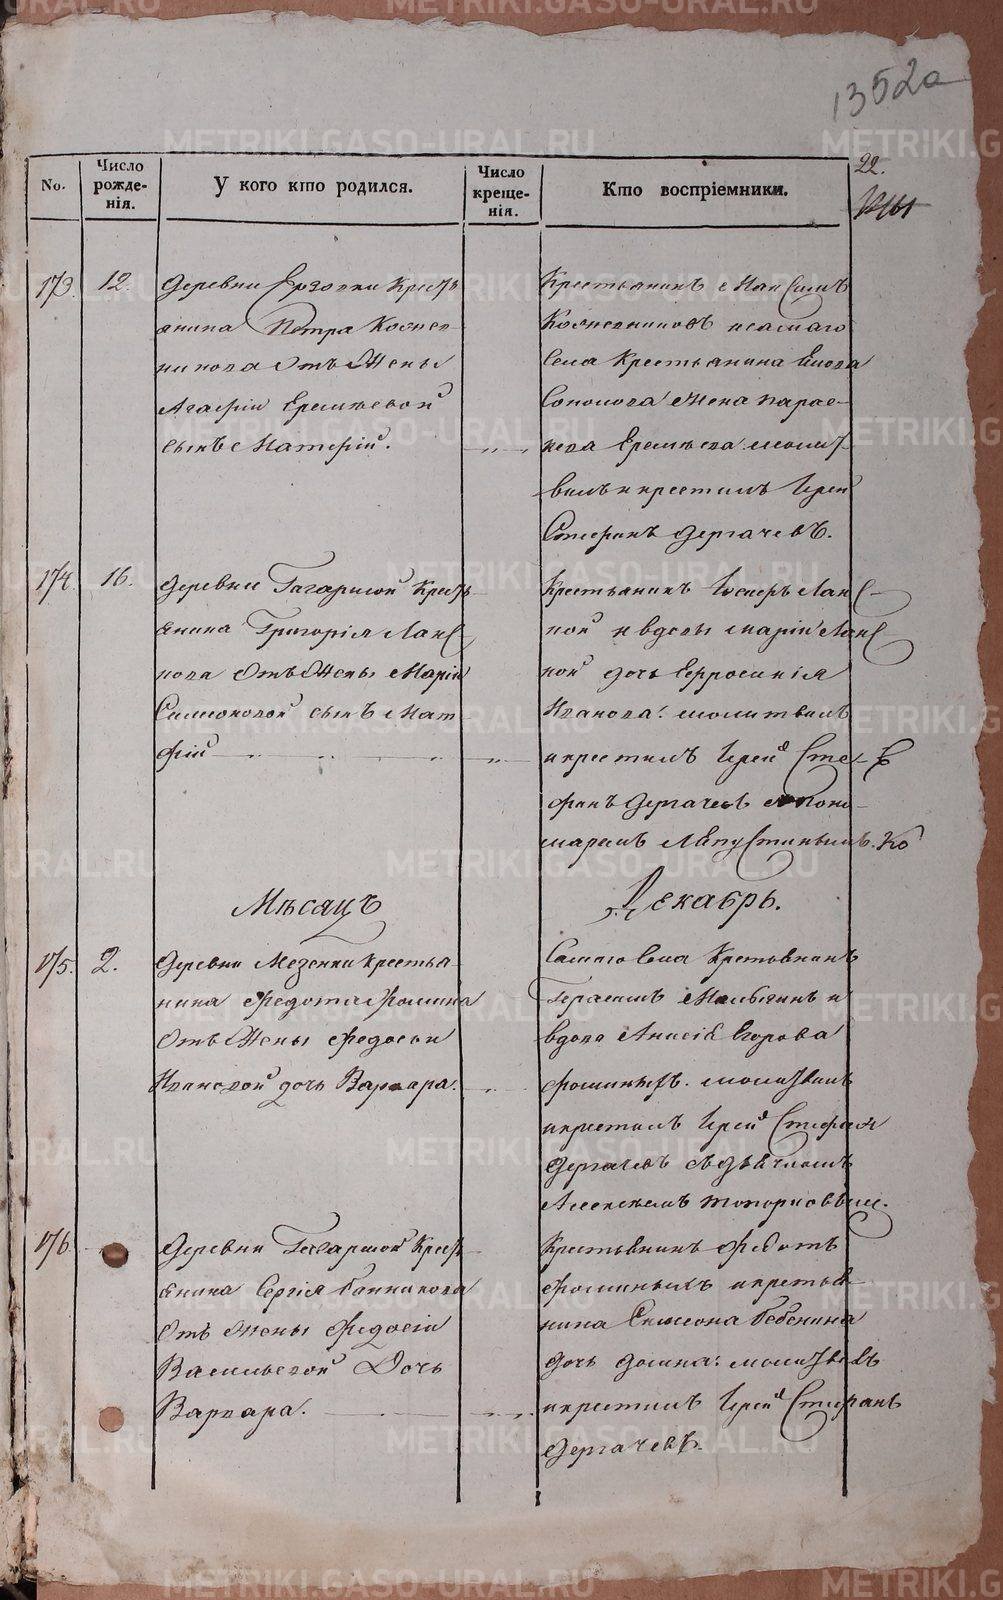 1352а
22.
No.
Число рожде-нія.
У кого кто родился.
Число креще-нія.
Кто воспріемники.
173. 12. Деревни Ерзовки Кресть
янина Петра Кожев
никова Отъ Жены
Агафіи Еремѣевой
сынъ Матфій.
Крестьянинъ Максимъ
Кожевниковъ исамаго
Села Крестьянина
Соколова Жена Парас-
кева Еремѣева: молит
вилъ и крестилъ Іерей
Стефанъ Дергачевъ.
174. 16. Деревни Гагарской Кресть
янина Григорія
Отъ Жены Маріи
Симеоновой сынъ Мат
фій
Крестьянинъ
и вдовы Маріи
дочь Евфросинія
Иванова: молитвилъ
икрестилъ Іерей Сте-
фанъ Дергачевъ спono-
маремъ
Мѣсяцъ Декабрь.
175. 2. Деревни Мезенки Крестья
нина Федота Фомина
Отъ Жены Федосьи
Ивановой дочь Варвара.
Самаго Села Крестьянинъ
Герасимъ и
вдова Анисія Егорова
Фоминыхъ. молитвилъ
икрестилъ Іерей Стефан
Дергачевъ съдьячкомъ
Алексѣемъ Топорковым.
176. Деревни Гагарской Кресть
янина Сергія Банникова
Отъ Жены Федосіи
Васильевой Дочь
Варвара.
Крестьянинъ Федотъ
Фоминыхъ икрестья
нина Симеона Бебенина
дочь Домна: молитвилъ
икрестилъ Іерей Стефанъ
Дергачевъ.
METRIKI.GASO-URAL.RU